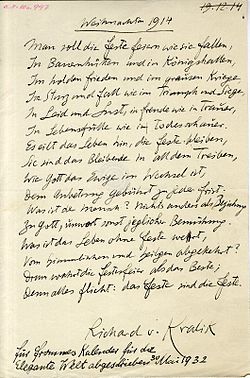 19.12.14
Weihnachten 1914
Man soll die Feste feiern wie sie fallen,
In Bauernhütten und in Königshallen,
Im holden Frieden und im grausen Kriege,
In Sturz und Fall wie im Triumph und Siege,
In Leid und Lust, in Freude wie in Trauer,
In Lebensfülle wie im Todesschauer.
Es eilt das Leben hin, die Feste bleiben,
Sie sind das Bleibende in all dem Treiben,
Wie Gott das Ewige im Wechsel ist,
Dem Anbetung gebührt zu jeder Frist.
Was ist der Mensch? Nichts anders als Beziehung
Zu Gott, umwallt von jeglicher Bemühung
Was ist das Leben ohne Feste wert,
Vom Himmlischen und Heilgen abgekehrt?
Drum wahrt die Festesfeier als das Beste;
Denn alles flieht: das Feste sind die Feste.
Richard v. Kralik
Für Frommes Kalender für die
Elegante Welt abgeschrieben 30 Mai 1932